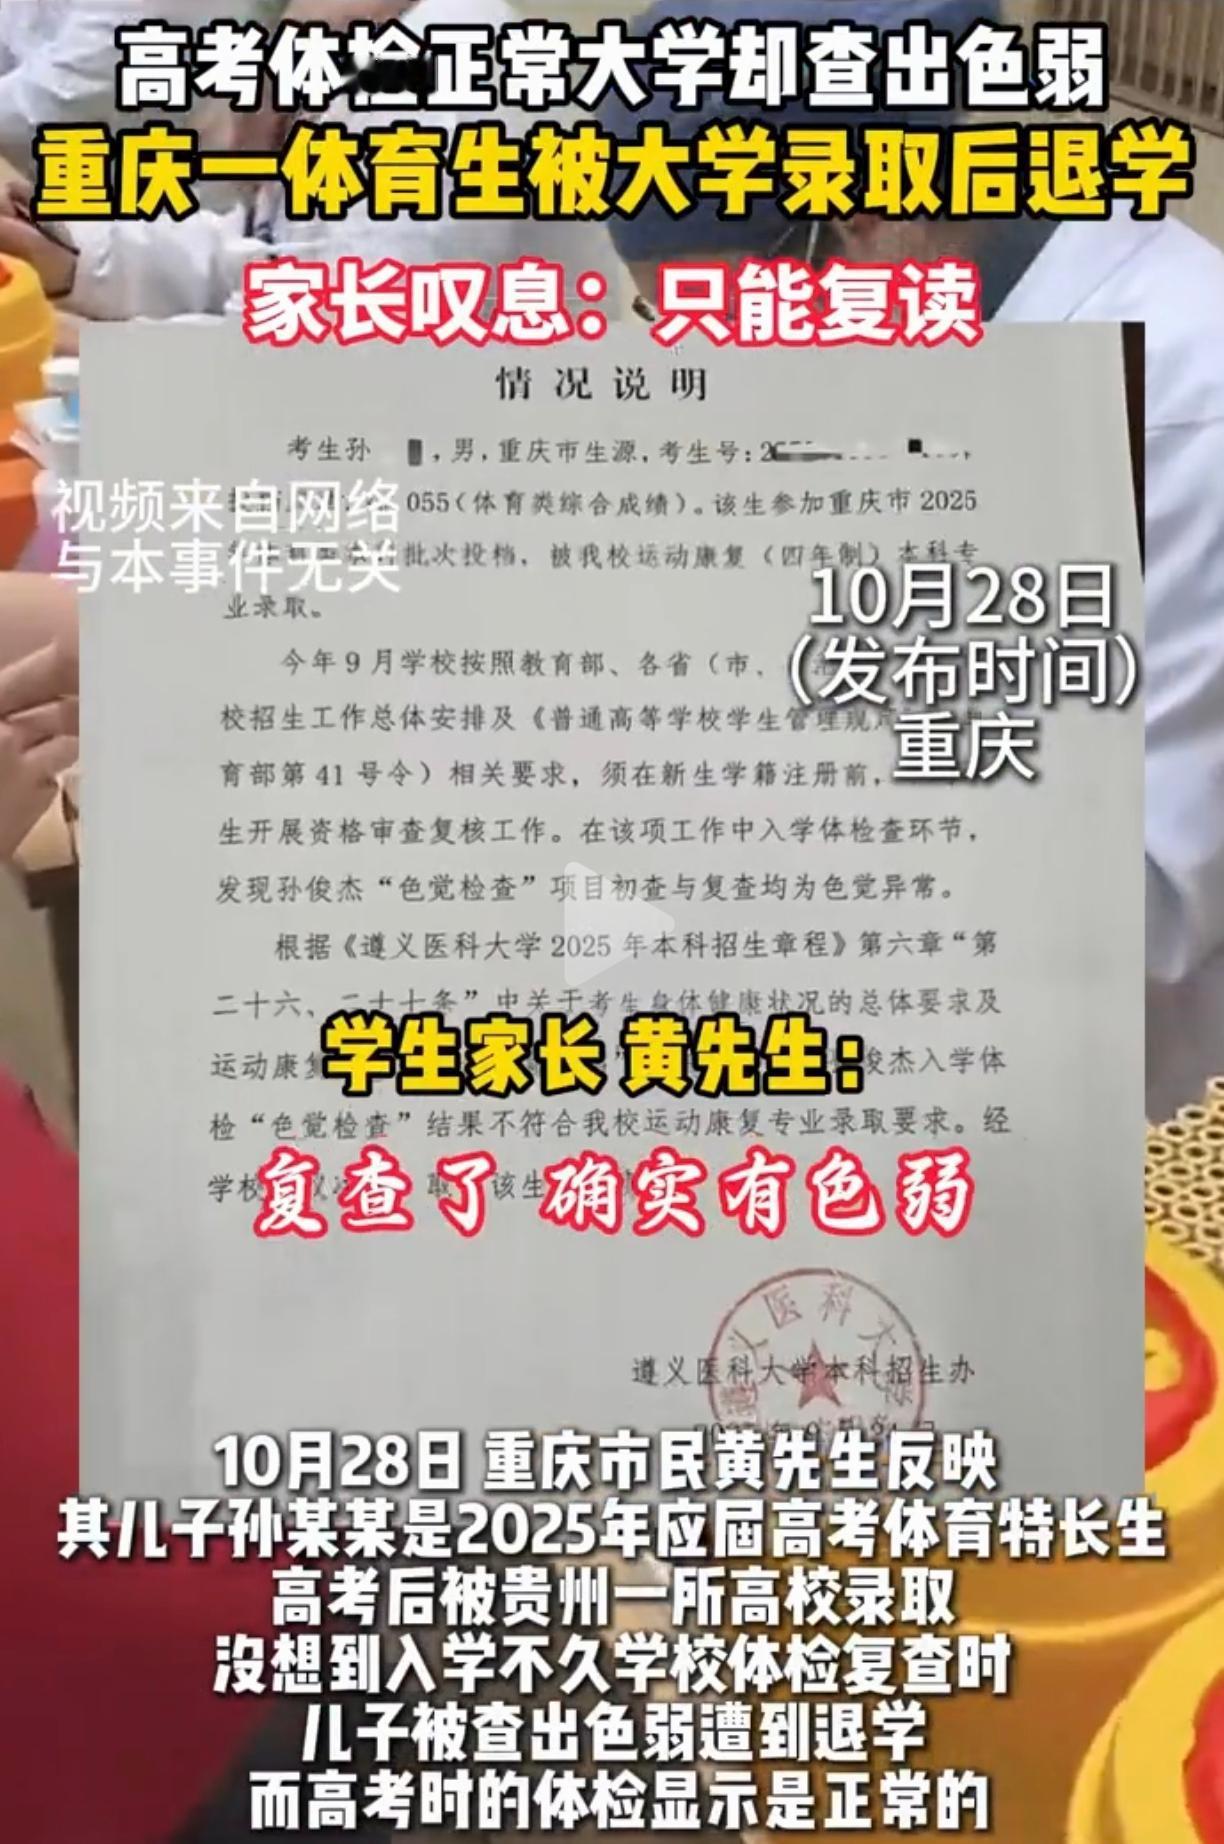 高考体检正常大学却查出色弱
重庆一体育生被大学录取后退学
家长叹息：只能复读
情况说明
考生孙 ，男，重庆市生源，考生号：2
055（体育类综合成绩）。该生参加重庆市 2025
视频来自网络
批次投档，被我校运动康复（四年制）本科专
与本事件无关
业录取。
10月28日
（发布时间）
重庆
今年9月学校按照教育部、各省（市、
校招生工作总体安排及《普通高等学校学生管理规
育部第 41 号令）相关要求，须在新生学籍注册前，
生开展资格审查复核工作。在该项工作中入学体检查环节，
发现孙俊杰“色觉检查”项目初查与复查均为色觉异常。
根据《遵义医科大学 2025 年本科招生章程》第六章“第
二十六、二十七条”中关于考生身体健康状况的总体要求及
学生家长 黄先生：
运动康复 俊杰入学体
检“色觉检查”结果不符合我校运动康复专业录取要求。经
复查了 确实有色弱
学校 取 该生
遵义医科大学本科招生办
10月28日 重庆市民黄先生反映
其儿子孙某某是2025年应届高考体育特长生
高考后被贵州一所高校录取
没想到入学不久学校体检复查时
儿子被查出色弱遭到退学
而高考时的体检显示是正常的